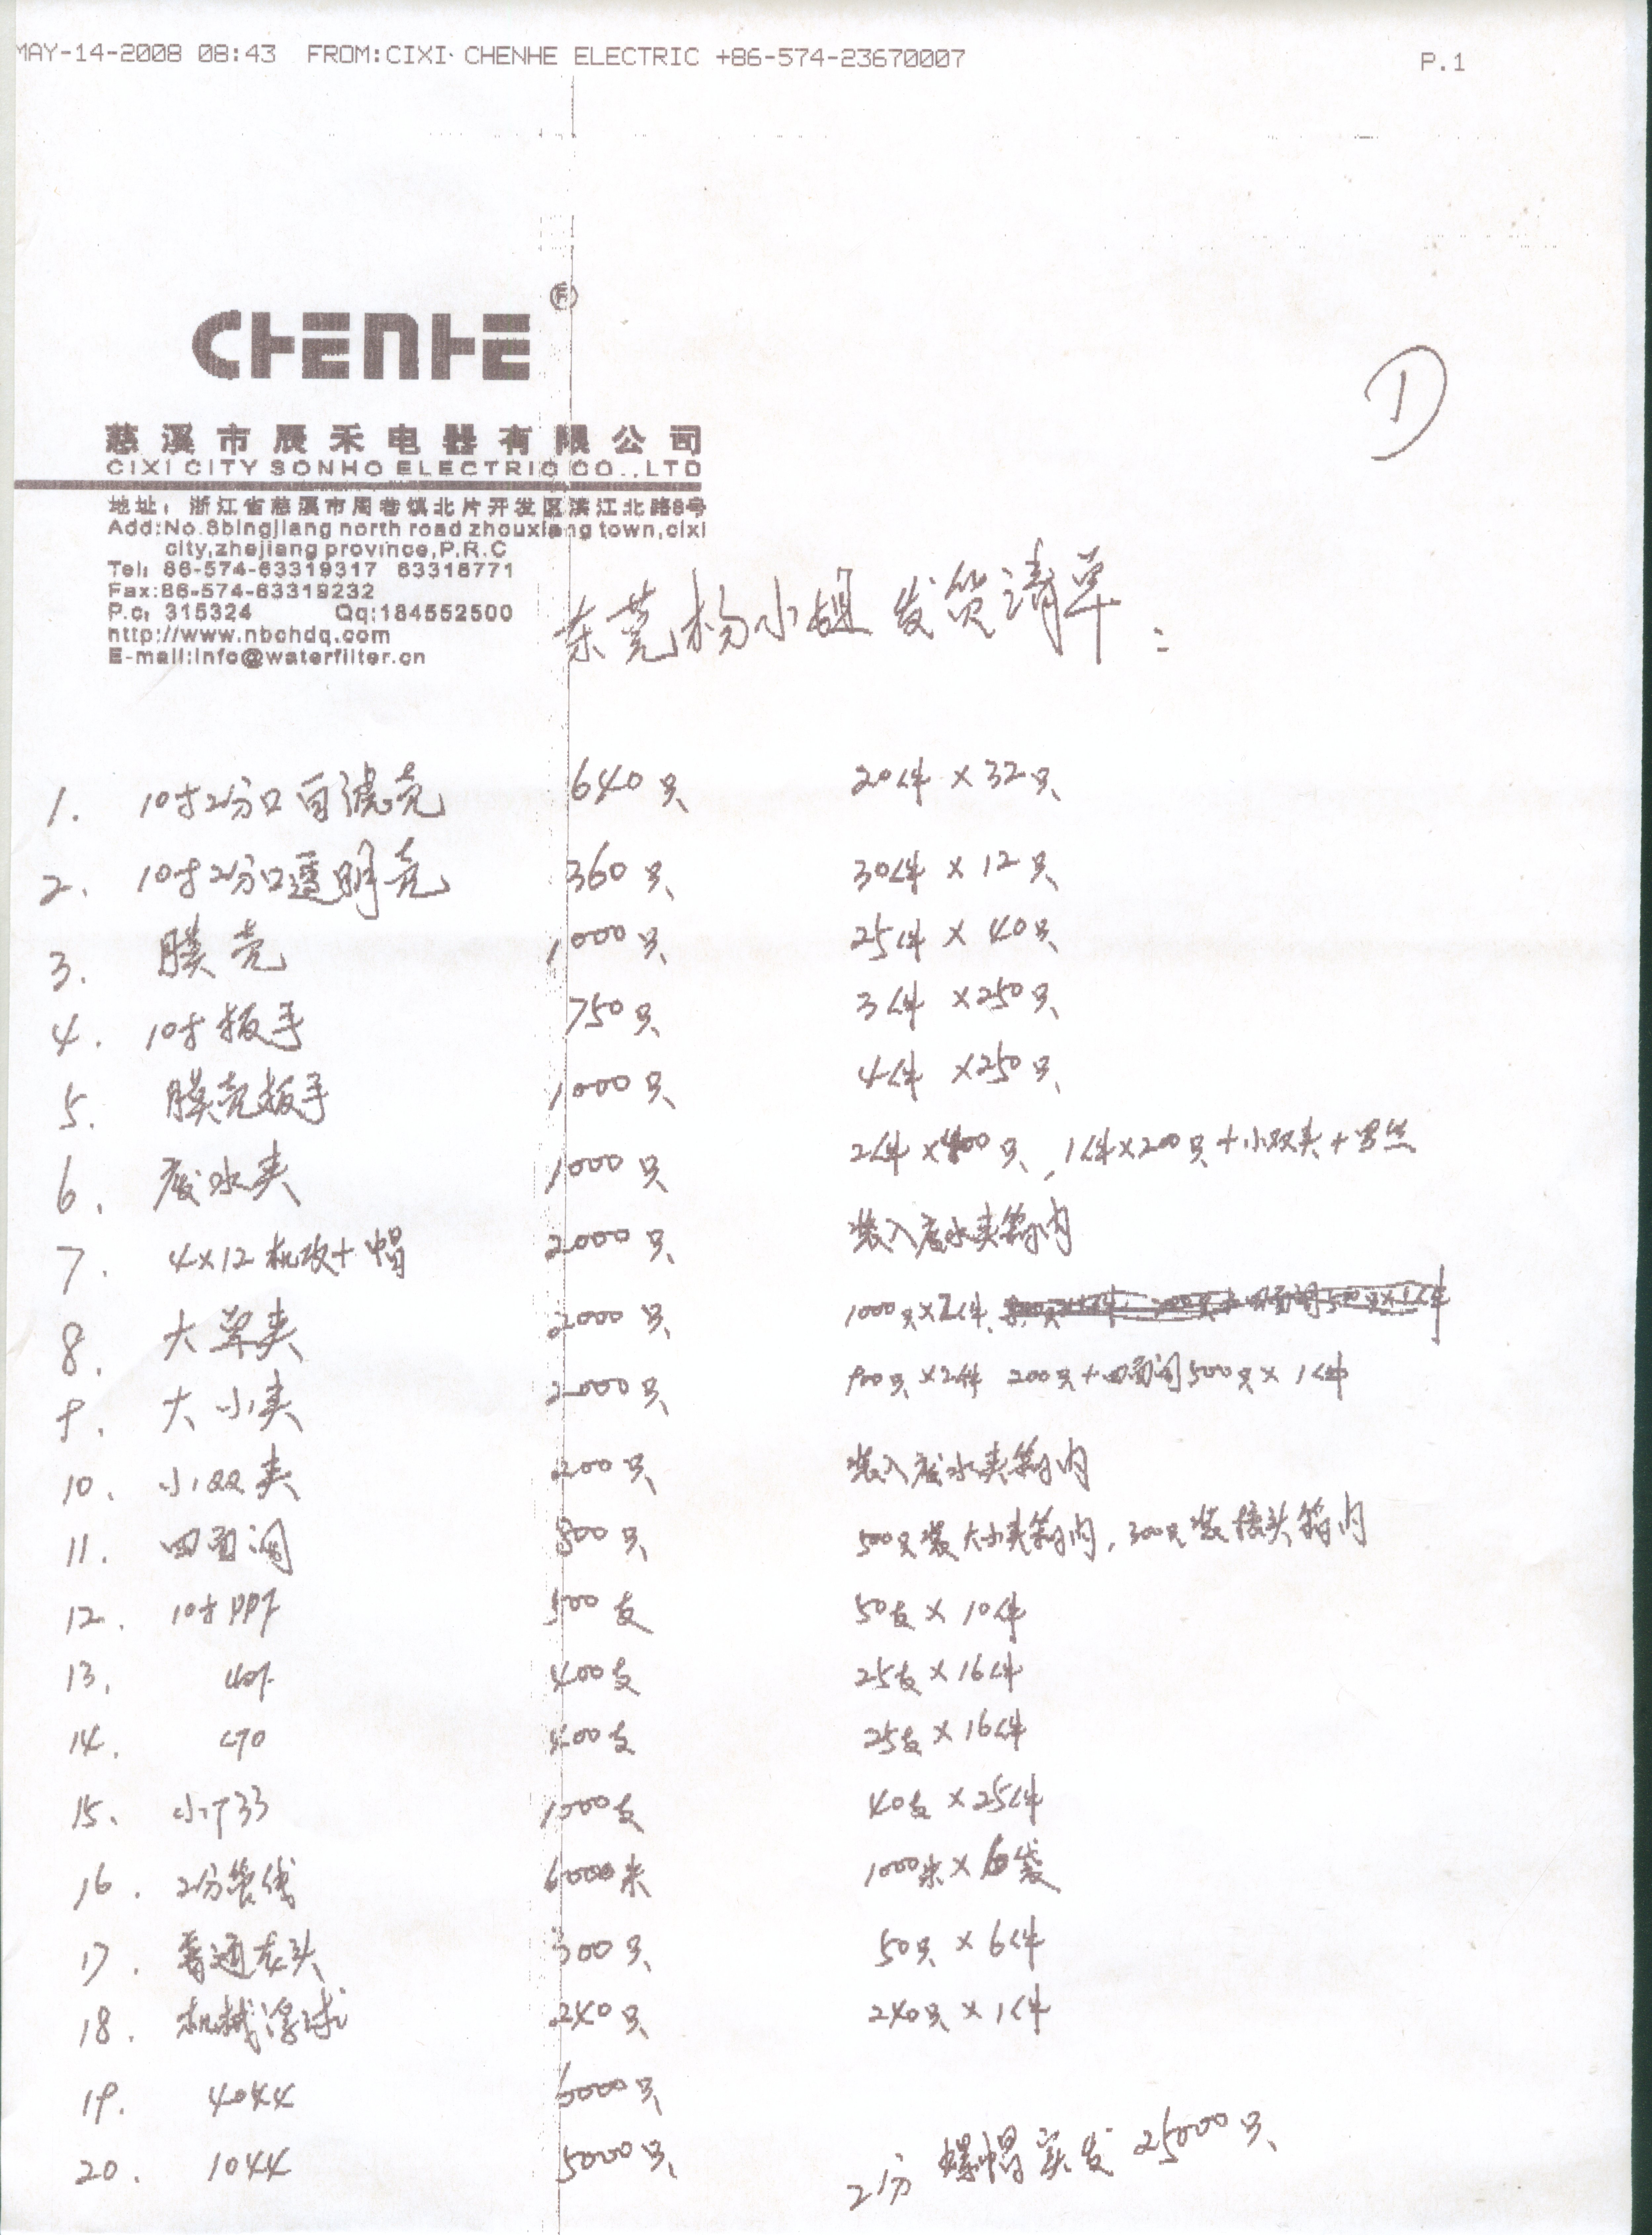 MAY-14-2008 08:43 FROM:CIXI CHENHE ELECTRIC +86-574-23670007 P.1
CHENHE ®
①
慈溪市辰禾电器有限公司
CIXI CITY SONHO ELECTRIC CO.,LTD
地址：浙江省慈溪市周巷镇北片开发区滨江北路8号
Add:No.8bingjiang north road zhouxiang town,cixi
city,zhejiang province,P.R.C
Tel: 86-574-63319317 63318771
Fax:86-574-63319232
P.c: 315324 Qq:184552500
http://www.nbchdq.com
E-mail:info@waterfilter.cn
东莞杨小姐发货清单：
1. 10寸2分口百滤壳 640只 20件×32只
2. 10寸2分口透明壳 360只 30件×12只
3. 膜壳 1000只 25件×40只
4. 10寸扳手 750只 3件×250只
5. 膜壳扳手 1000只 4件×250只
6. 废水夹 1000只 2件×400只，1件×200只+小双夹+罗丝
7. 4×12机攻+帽 2000只 装入废水夹箱内
8. 大单夹 2000只 1000只×2件
9. 大小夹 2000只 900只×2件 200只+四面阀500只×1件
10. 小双夹 200只 装入废水夹箱内
11. 四面阀 800只 500只装大小夹箱内，300只装接头箱内
12. 10寸PPF 500支 50支×10件
13. 400支 25支×16件
14. CTO 400支 25支×16件
15. 小T33 1000支 40支×25件
16. 2分管线 6000米 1000米×6袋
17. 普通龙头 300只 50只×6件
18. 机械浮球 240只 240只×1件
19. 4044 6000只
20. 1044 5000只 2分螺帽实发25000只